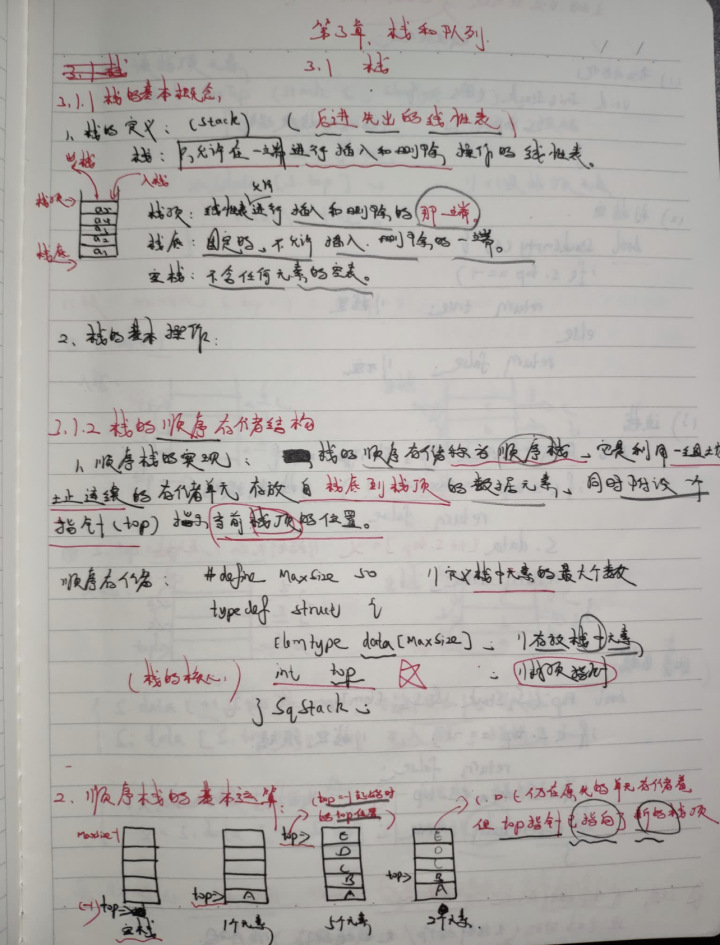 第3章、栈和队列.
3.1 栈
3.1 栈
3.1.1 栈的基本概念,
1、栈的定义: (Stack) (后进先出的线性表)
栈: 只允许在一端进行插入和删除操作的线性表。
出栈
入栈
栈顶
栈底
a5
a4
a3
a2
a1
允许
栈顶: 线性表进行插入和删除的那一端。
栈底: 固定的, 不允许插入、删除的一端。
空栈: 不含任何元素的空表。
2、栈的基本操作:
3.1.2 栈的顺序存储结构
1、顺序栈的实现: 栈的顺序存储称为顺序栈, 它是利用一组地
址连续的存储单元存放自栈底到栈顶的数据元素, 同时附设一个
指针(top) 指示当前栈顶的位置。
顺序存储: #define Maxsize 50 //定义栈中元素的最大个数
typedef struct {
Elemtype data[Maxsize]; //存放栈中元素
(栈的核心) int top ; //栈顶指针
} SqStack;
2、顺序栈的基本运算:
(top=-1 初始时
的top位置)
C.D.E仍在原先的单元存储着
但top指针已指向了新的栈顶
maxsize-1
(-1) top
空栈
top
A
1个元素
top
E
D
C
B
A
5个元素
top
E
D
C
B
A
2个元素.